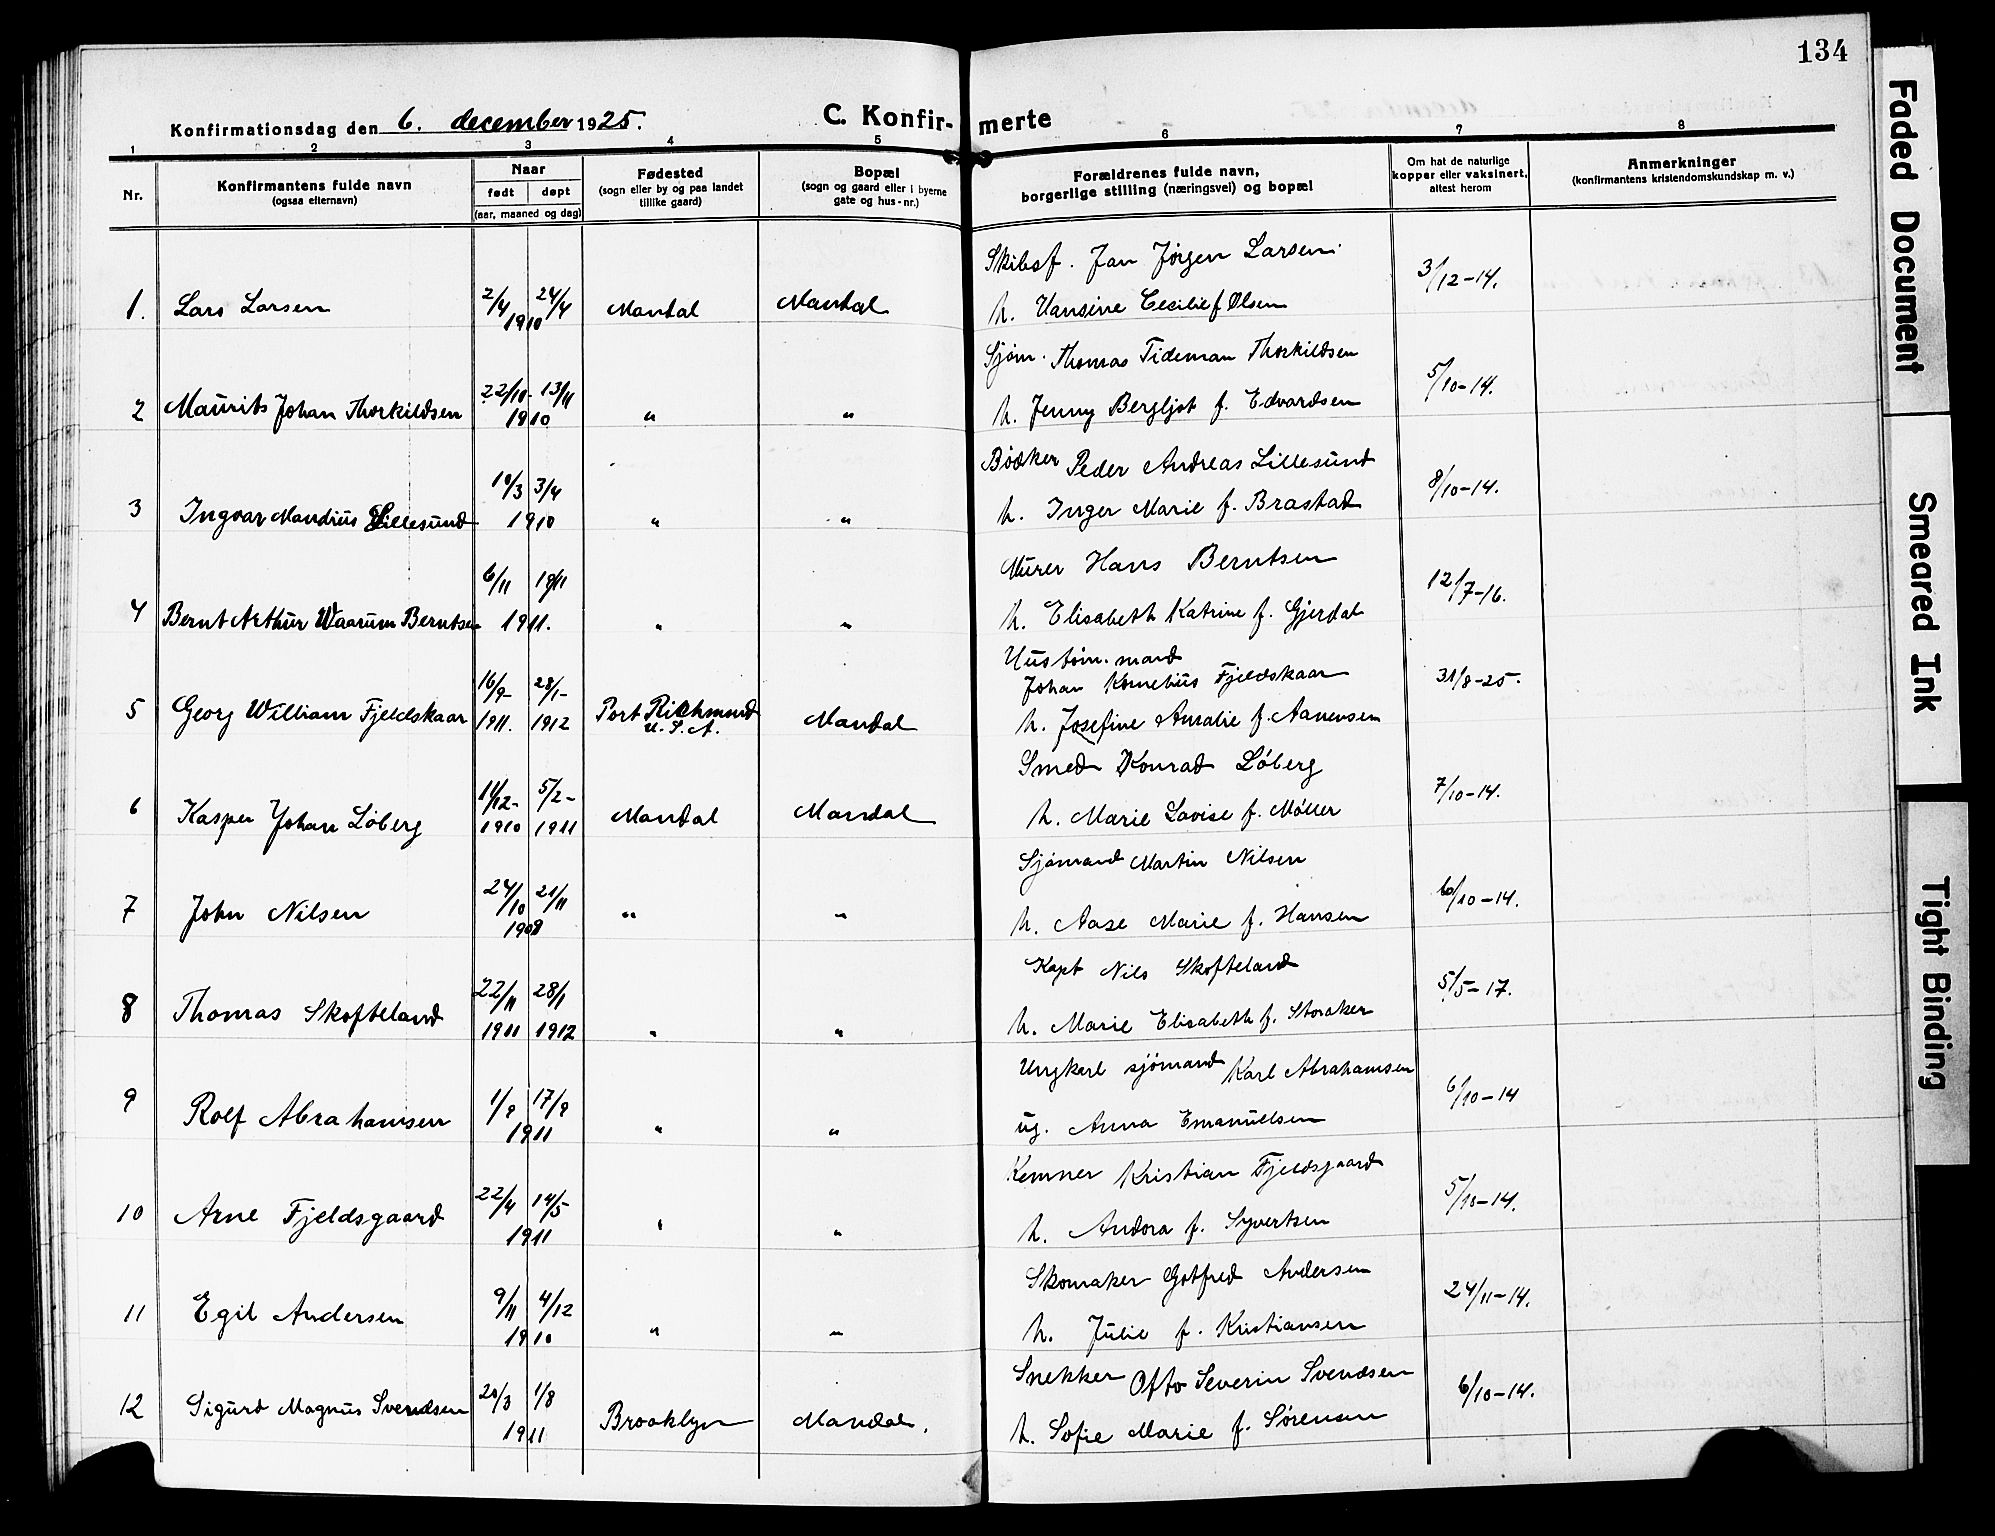 134
Konfirmationsdag den 6. december 1925.
C. Konfirmerte
1 2 3 4 5 6 7 8
Nr.
Konfirmantens fulde navn
(ogsaa efternavn)
Naar
født døpt
(aar, maaned og dag)
Fødested
(sogn eller by og paa landet
tillike gaard)
Bopæl
(sogn og gaard eller i byerne
gate og hus-nr.)
Forældrenes fulde navn,
borgerlige stilling (næringsvei) og bopæl
Om hat de naturlige
kopper eller vaksinert,
attest herom
Anmerkninger
(konfirmantens kristendomskundskap m. v.)
Skibsf. Jan Jørgen Larsen.
1. Lars Larsen 2/4 24/4 1910 Mandal Mandal 3/12-14.
h. Hansine Cecilie f Olsen
Sjøm. Thomas Tideman Thorkildsen
2 Maurits Johan Thorkildsen 22/10- 13/11 1910 " " 5/10-14.
h. Jenny Bergljot f. Edvardsen
Bødker Peder Andreas Lillesund
3 Ingvar Mandius Lillesund 3/4 1910 " " 8/10-14.
h. Inger Marie f. Brastad
Murer Hans Berntsen
4 Bernt Arthur Waarum Berntsen 6/11 19/11 1911. " " 12/7-16.
h. Elisabeth Katrine f. Gjerdal
Hustøm. mand
Johan Kornelius Fjeldskaar
5 Georg William Fjeldskaar 16/9- 1911. 28/1- 1912 Port Richmond U.S.A. Mandal 31/8-25.
h. Josefine Amalie f. Aanensen
Smed Konrad Løberg
6 Kasper Johan Løberg 11/12- 1910 5/2- 1911 Mandal Mandal 7/10-14.
h. Marie Lovise f. Møller
Sjømand Martin Nilsen
7 John Nilsen 24/10 21/11 1908 " " 6/10-14.
h. Aase Marie f. Hansen
Kapt Nils Skofteland
8 Thomas Skofteland 22/11 1911 28/1 1912 " " 5/5-17.
h. Marie Elisabeth f. Storaker
Ungkarl sjømand Karl Abrahamsen
9 Rolf Abrahamsen 1/8 17/8 1911 " " 6/10-14
ug. Anna Emanuelsen
Kemner Kristian Fjeldsgaard
10 Arne Fjeldsgaard 22/4 14/5 1911 " " 5/10-14.
h. Andora f. Syvertsen
Skomaker Gotfred Andersen
11 Egil Andersen 9/11 4/12 1910 " " 24/11-14.
h. Julie f. Kristiansen
Snekker Otto Severin Svendsen
12 Sigurd Magnus Svendsen 20/3 1/8 1911 Brooklyn Mandal. 6/10-14.
h. Sofie Marie f. Sørensen
Faded Document
Smeared Ink
Tight Binding